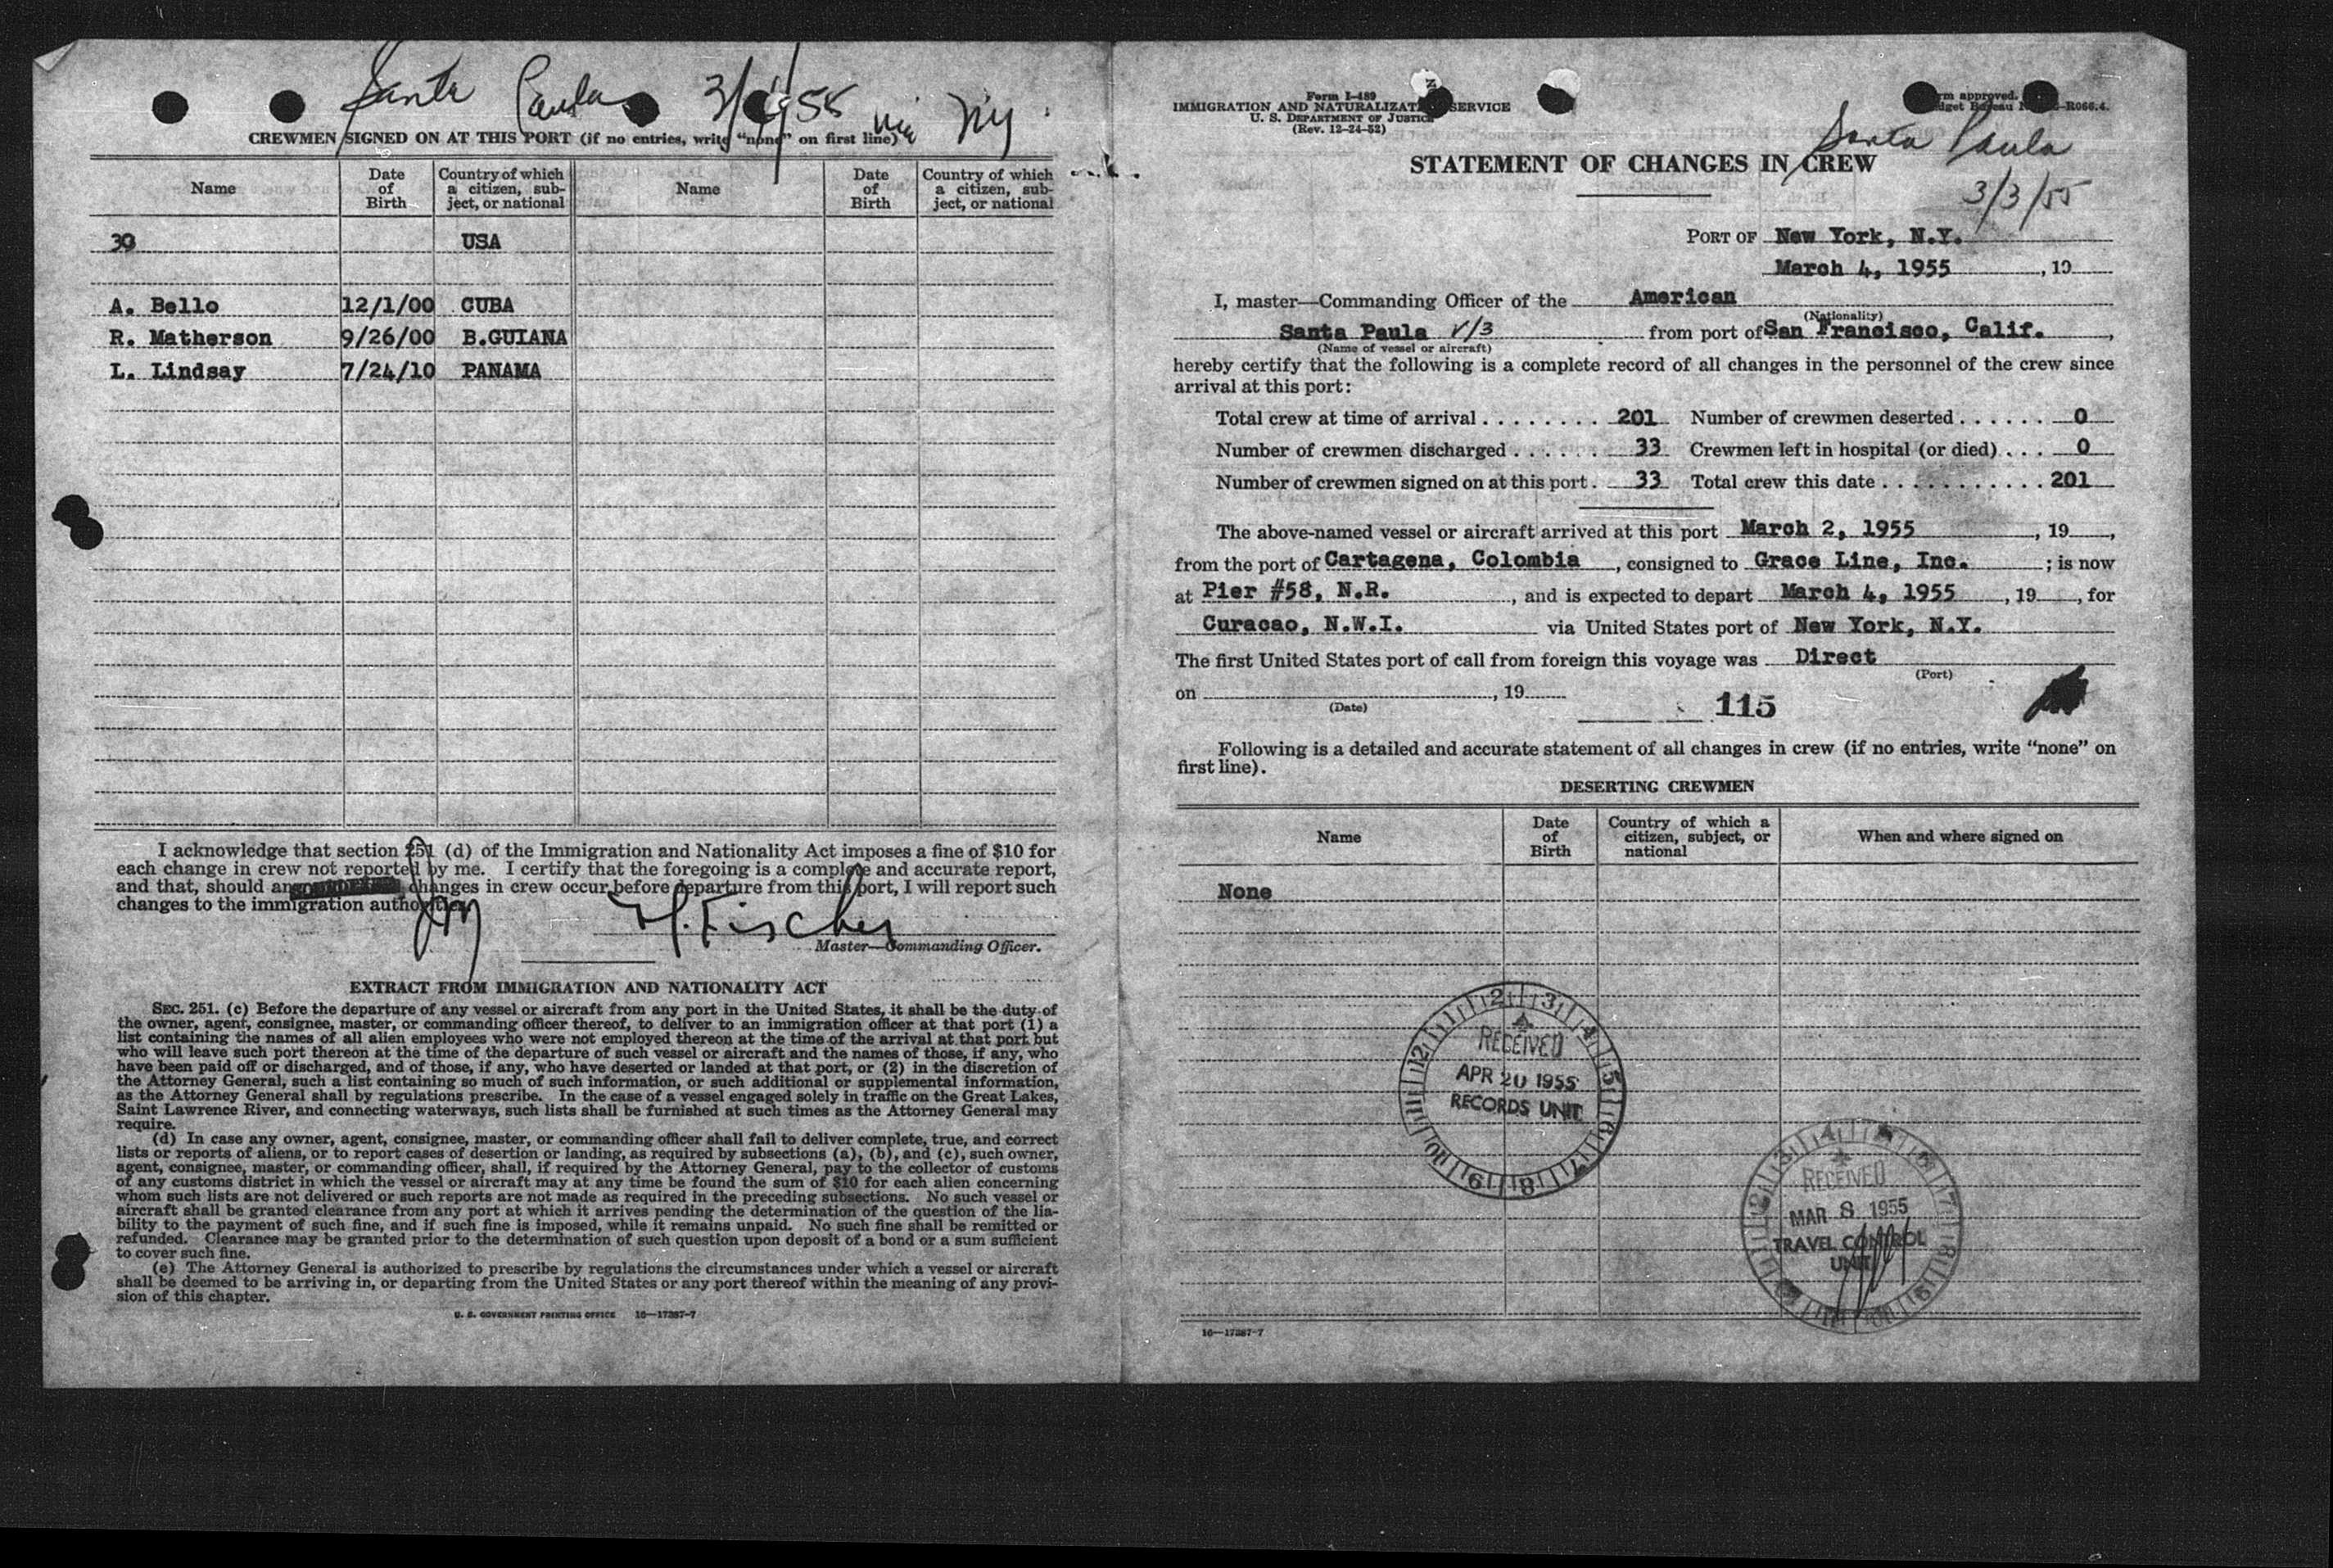 Santa Paula
CREWMEN SIGNED ON AT THIS PORT (if no entries, write "none" on first line)
Name
Date of Birth
Country of which a citizen, subject, or national
Name
Date of Birth
Country of which a citizen, subject, or national
30 USA
A. Bello 12/1/00 CUBA
R. Matherson 9/26/00 B.GUIANA
L. Lindsay 7/24/10 PANAMA
I acknowledge that section 251 (d) of the Immigration and Nationality Act imposes a fine of $10 for
each change in crew not reported by me. I certify that the foregoing is a complete and accurate report,
and that, should any changes in crew occur before departure from this port, I will report such
changes to the immigration authorities.
H. Fischer
Master—Commanding Officer.
EXTRACT FROM IMMIGRATION AND NATIONALITY ACT
SEC. 251. (c) Before the departure of any vessel or aircraft from any port in the United States, it shall be the duty of
the owner, agent, consignee, master, or commanding officer thereof, to deliver to an immigration officer at that port (1) a
list containing the names of all alien employees who were not employed thereon at the time of the arrival at that port but
who will leave such port thereon at the time of the departure of such vessel or aircraft and the names of those, if any, who
have been paid off or discharged, and of those, if any, who have deserted or landed at that port, or (2) in the discretion of
the Attorney General, such a list containing so much of such information, or such additional or supplemental information,
as the Attorney General shall by regulations prescribe. In the case of a vessel engaged solely in traffic on the Great Lakes,
Saint Lawrence River, and connecting waterways, such lists shall be furnished at such times as the Attorney General may
require.
(d) In case any owner, agent, consignee, master, or commanding officer shall fail to deliver complete, true, and correct
lists or reports of aliens, or to report cases of desertion or landing, as required by subsections (a), (b), and (c), such owner,
agent, consignee, master, or commanding officer, shall, if required by the Attorney General, pay to the collector of customs
of any customs district in which the vessel or aircraft may at any time be found the sum of $10 for each alien concerning
whom such lists are not delivered or such reports are not made as required in the preceding subsections. No such vessel or
aircraft shall be granted clearance from any port at which it arrives pending the determination of the question of the lia-
bility to the payment of such fine, and if such fine is imposed, while it remains unpaid. No such fine shall be remitted or
refunded. Clearance may be granted prior to the determination of such question upon deposit of a bond or a sum sufficient
to cover such fine.
(e) The Attorney General is authorized to prescribe by regulations the circumstances under which a vessel or aircraft
shall be deemed to be arriving in, or departing from the United States or any port thereof within the meaning of any provi-
sion of this chapter.
U. S. GOVERNMENT PRINTING OFFICE 16—17287-7
Form I-489
IMMIGRATION AND NATURALIZATION SERVICE
U. S. DEPARTMENT OF JUSTICE
(Rev. 12-24-52)
Form approved.
Budget Bureau No. -R066.4.
Santa Paula
3/3/55
STATEMENT OF CHANGES IN CREW
PORT OF New York, N.Y.
March 4, 1955, 19
I, master—Commanding Officer of the American
(Nationality)
Santa Paula V/3 from port of San Francisco, Calif.,
(Name of vessel or aircraft)
hereby certify that the following is a complete record of all changes in the personnel of the crew since
arrival at this port:
Total crew at time of arrival . . . . . . . . 201 Number of crewmen deserted . . . . . . 0
Number of crewmen discharged . . . . . . 33 Crewmen left in hospital (or died) . . . 0
Number of crewmen signed on at this port . 33 Total crew this date . . . . . . . . . . . 201
The above-named vessel or aircraft arrived at this port March 2, 1955, 19,
from the port of Cartagena, Colombia, consigned to Grace Line, Inc. ; is now
at Pier #58, N.R., and is expected to depart March 4, 1955, 19, for
Curacao, N.W.I. via United States port of New York, N.Y.
The first United States port of call from foreign this voyage was Direct
(Port)
on , 19
(Date)
115
Following is a detailed and accurate statement of all changes in crew (if no entries, write "none" on
first line).
DESERTING CREWMEN
Name
Date of Birth
Country of which a citizen, subject, or national
When and where signed on
None
RECEIVED
APR 20 1955
RECORDS UNIT
RECEIVED
MAR 8 1955
TRAVEL CONTROL
UNIT
16—17287-7